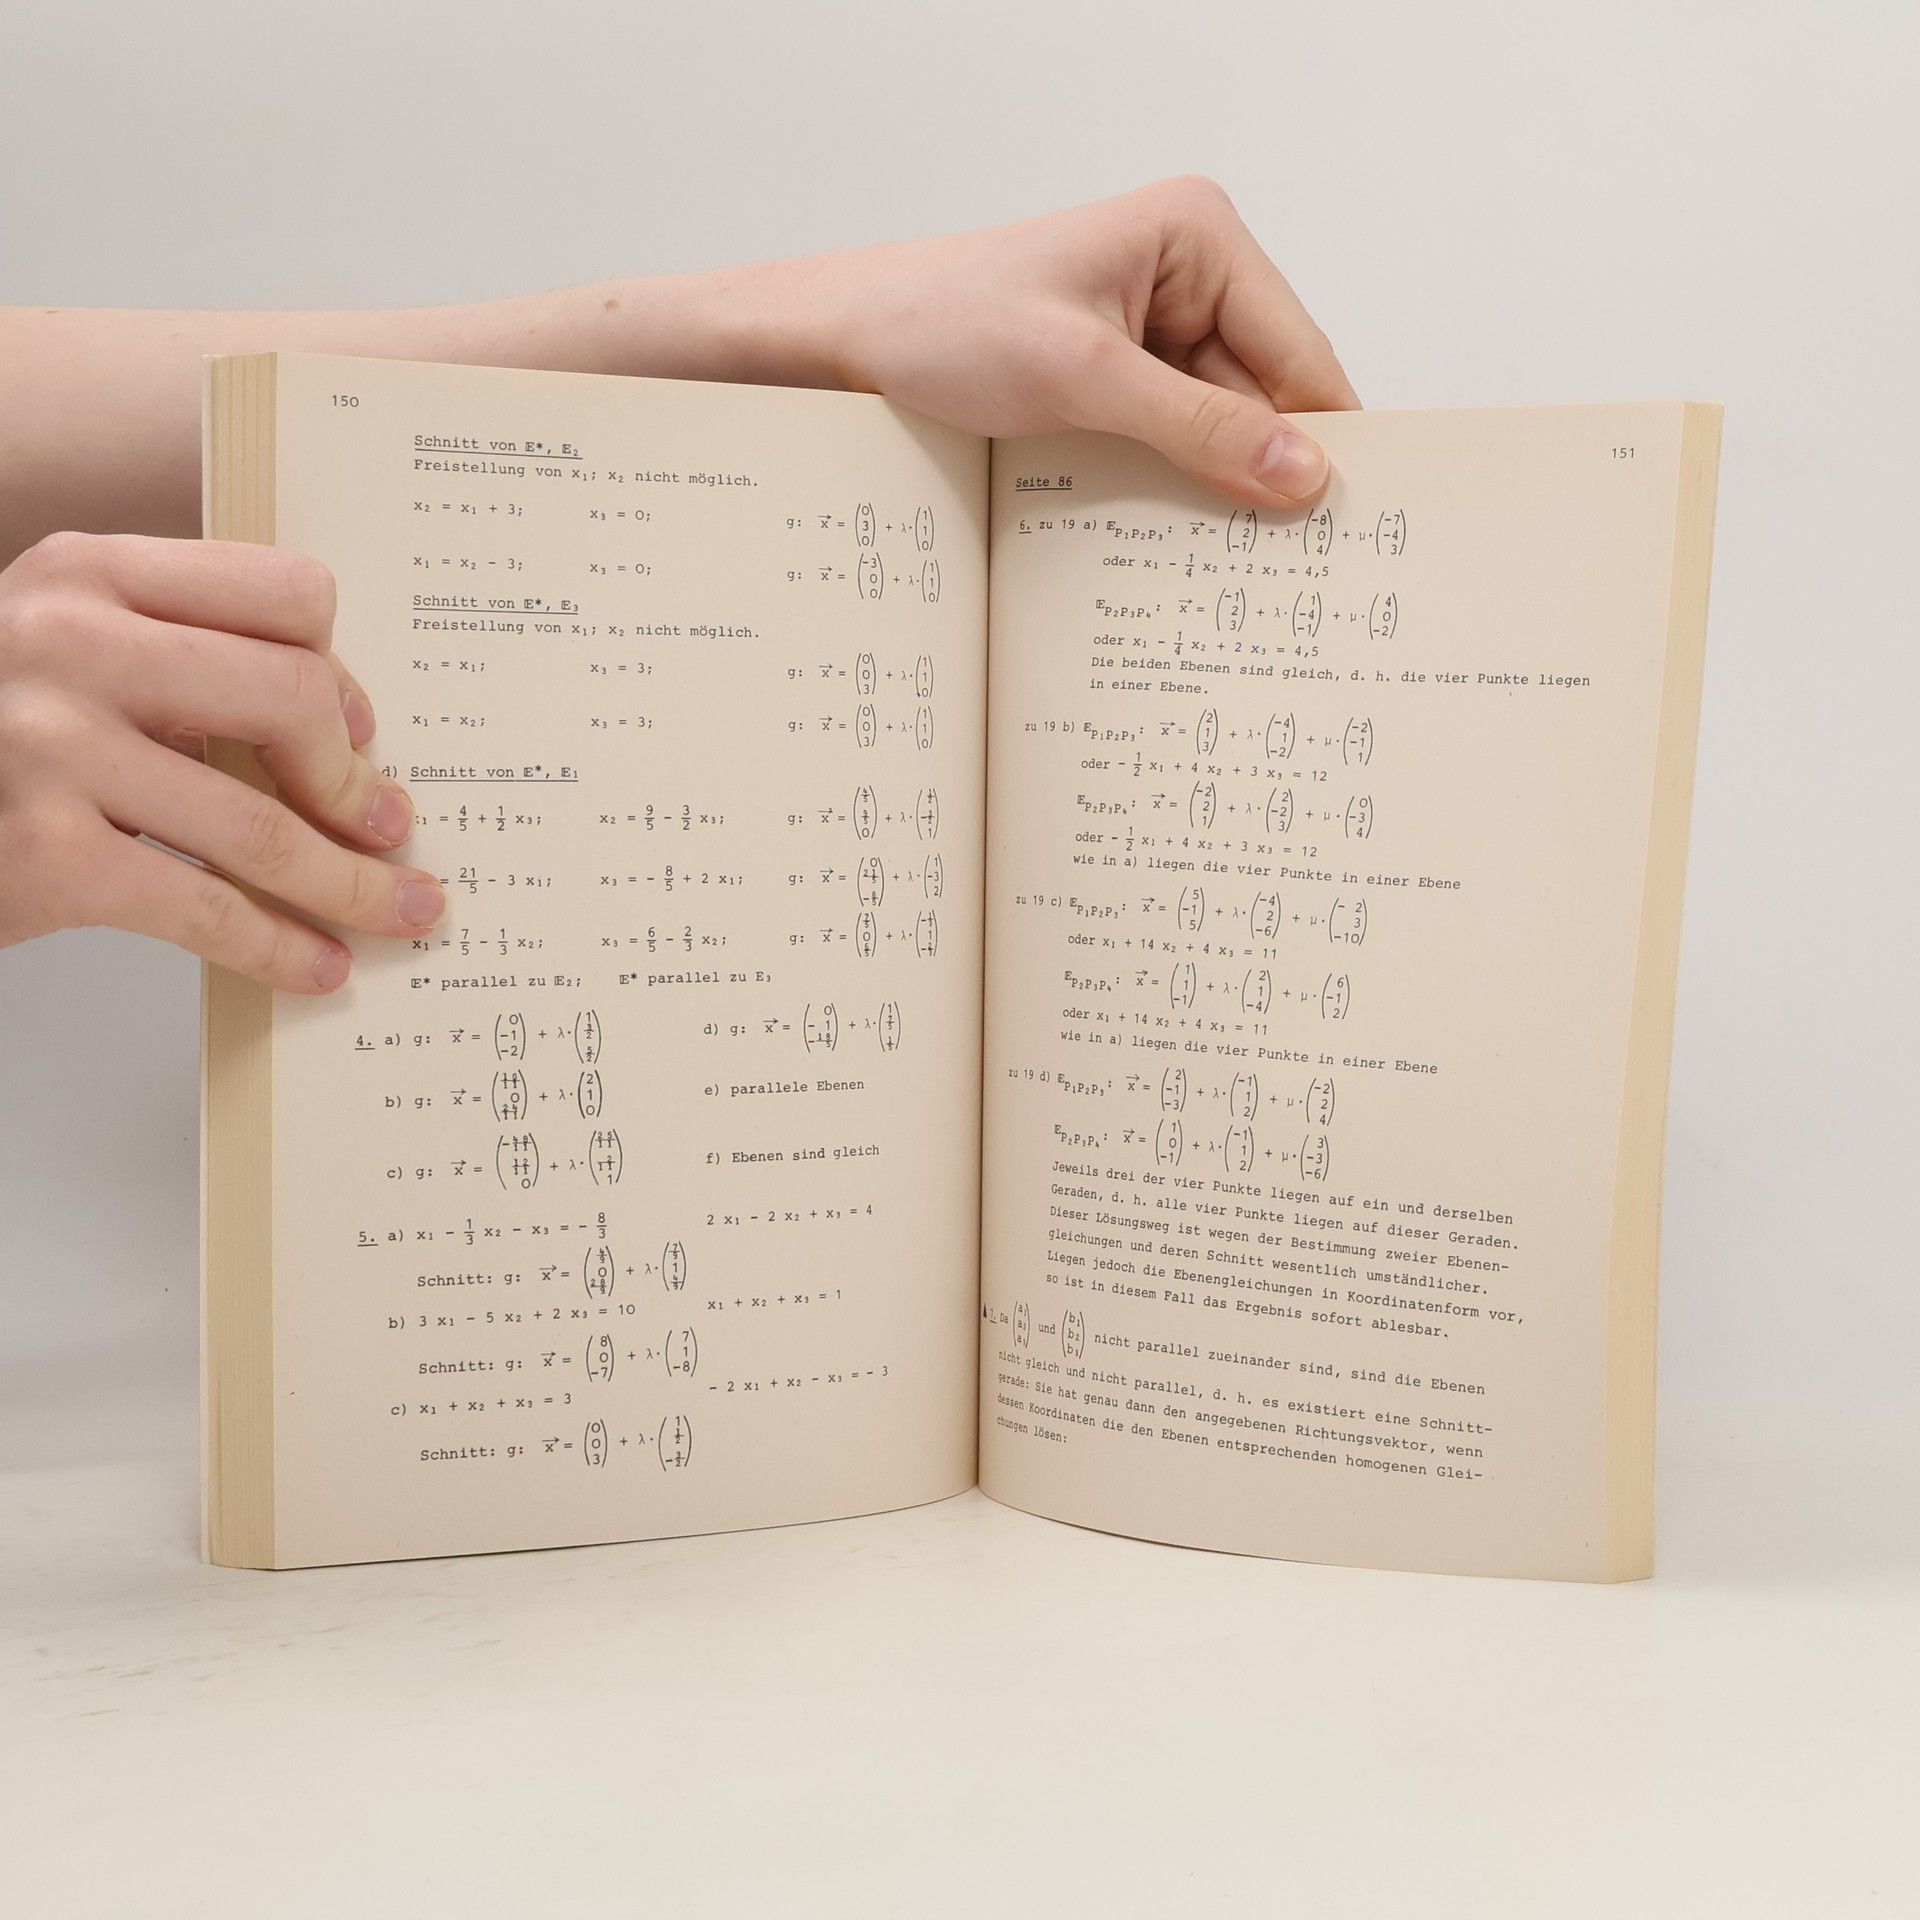 150
Schnitt von 𝔼*, 𝔼₂
Freistellung von x₁; x₂ nicht möglich.
x₂ = x₁ + 3; x₃ = 0; g: x⃗ = (0 3 0) + λ·(1 1 0)
x₁ = x₂ - 3; x₃ = 0; g: x⃗ = (-3 0 0) + λ·(1 1 0)
Schnitt von 𝔼*, 𝔼₃
Freistellung von x₁; x₂ nicht möglich.
x₂ = x₁; x₃ = 3; g: x⃗ = (0 0 3) + λ·(1 1 0)
x₁ = x₂; x₃ = 3; g: x⃗ = (0 0 3) + λ·(1 1 0)
d) Schnitt von 𝔼*, 𝔼₁
= 4/5 + 1/2 x₃; x₂ = 9/5 - 3/2 x₃; g: x⃗ = (4/5 9/5 0) + λ·(1/2 -3/2 1)
= 21/5 - 3 x₁; x₃ = - 8/5 + 2 x₁; g: x⃗ = (0 21/5 -8/5) + λ·(1 -3 2)
x₁ = 7/5 - 1/3 x₂; x₃ = 6/5 - 2/3 x₂; g: x⃗ = (7/5 0 6/5) + λ·(-1/3 1 -2/3)
𝔼* parallel zu 𝔼₂; 𝔼* parallel zu E₃
4. a) g: x⃗ = (0 -1 -2) + λ·(1 3/2 5/2) d) g: x⃗ = (0 -1 -18/5) + λ·(1 7/5 1/5)
b) g: x⃗ = (10/11 0 24/11) + λ·(2 1 0) e) parallele Ebenen
c) g: x⃗ = (-48/11 12/11 0) + λ·(25/11 2/11 1) f) Ebenen sind gleich
5. a) x₁ - 1/3 x₂ - x₃ = - 8/3 2 x₁ - 2 x₂ + x₃ = 4
Schnitt: g: x⃗ = (4/9 0 28/9) + λ·(7/9 1 4/9)
b) 3 x₁ - 5 x₂ + 2 x₃ = 10 x₁ + x₂ + x₃ = 1
Schnitt: g: x⃗ = (8 0 -7) + λ·(7 1 -8)
c) x₁ + x₂ + x₃ = 3 - 2 x₁ + x₂ - x₃ = - 3
Schnitt: g: x⃗ = (0 0 3) + λ·(1 1/2 -3/2)
151
Seite 86
6. zu 19 a) 𝔼P₁P₂P₃: x⃗ = (7 2 -1) + λ·(-8 0 4) + μ·(-7 -4 3)
oder x₁ - 1/4 x₂ + 2 x₃ = 4,5
𝔼P₂P₃P₄: x⃗ = (-1 2 3) + λ·(1 -4 -1) + μ·(4 0 -2)
oder x₁ - 1/4 x₂ + 2 x₃ = 4,5
Die beiden Ebenen sind gleich, d. h. die vier Punkte liegen
in einer Ebene.
zu 19 b) 𝔼P₁P₂P₃: x⃗ = (2 1 3) + λ·(-4 1 -2) + μ·(-2 -1 1)
oder - 1/2 x₁ + 4 x₂ + 3 x₃ = 12
𝔼P₂P₃P₄: x⃗ = (-2 2 1) + λ·(2 -2 3) + μ·(0 -3 4)
oder - 1/2 x₁ + 4 x₂ + 3 x₃ = 12
wie in a) liegen die vier Punkte in einer Ebene
zu 19 c) 𝔼P₁P₂P₃: x⃗ = (5 -1 5) + λ·(-4 2 -6) + μ·(- 2 3 -10)
oder x₁ + 14 x₂ + 4 x₃ = 11
𝔼P₂P₃P₄: x⃗ = (1 1 -1) + λ·(2 1 -4) + μ·(6 -1 2)
oder x₁ + 14 x₂ + 4 x₃ = 11
wie in a) liegen die vier Punkte in einer Ebene
zu 19 d) 𝔼P₁P₂P₃: x⃗ = (2 -1 -3) + λ·(-1 1 2) + μ·(-2 2 4)
𝔼P₂P₃P₄: x⃗ = (1 0 -1) + λ·(-1 1 2) + μ·(3 -3 -6)
Jeweils drei der vier Punkte liegen auf ein und derselben
Geraden, d. h. alle vier Punkte liegen auf dieser Geraden.
Dieser Lösungsweg ist wegen der Bestimmung zweier Ebenen-
gleichungen und deren Schnitt wesentlich umständlicher.
Liegen jedoch die Ebenengleichungen in Koordinatenform vor,
so ist in diesem Fall das Ergebnis sofort ablesbar.
▲ 7. Da (a₁ a₂ a₃) und (b₁ b₂ b₃) nicht parallel zueinander sind, sind die Ebenen
nicht gleich und nicht parallel, d. h. es existiert eine Schnitt-
gerade: Sie hat genau dann den angegebenen Richtungsvektor, wenn
dessen Koordinaten die den Ebenen entsprechenden homogenen Glei-
chungen lösen: